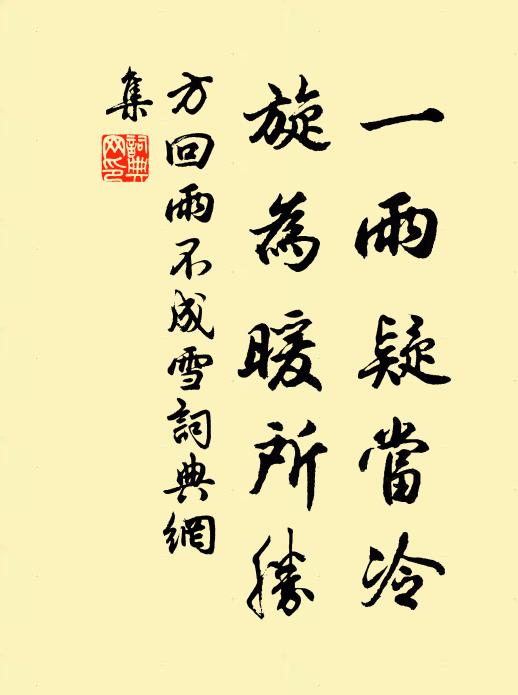 一雨疑當冷
旋為暖所勝
方回雨不成雪詞典網
集
詞典
网印